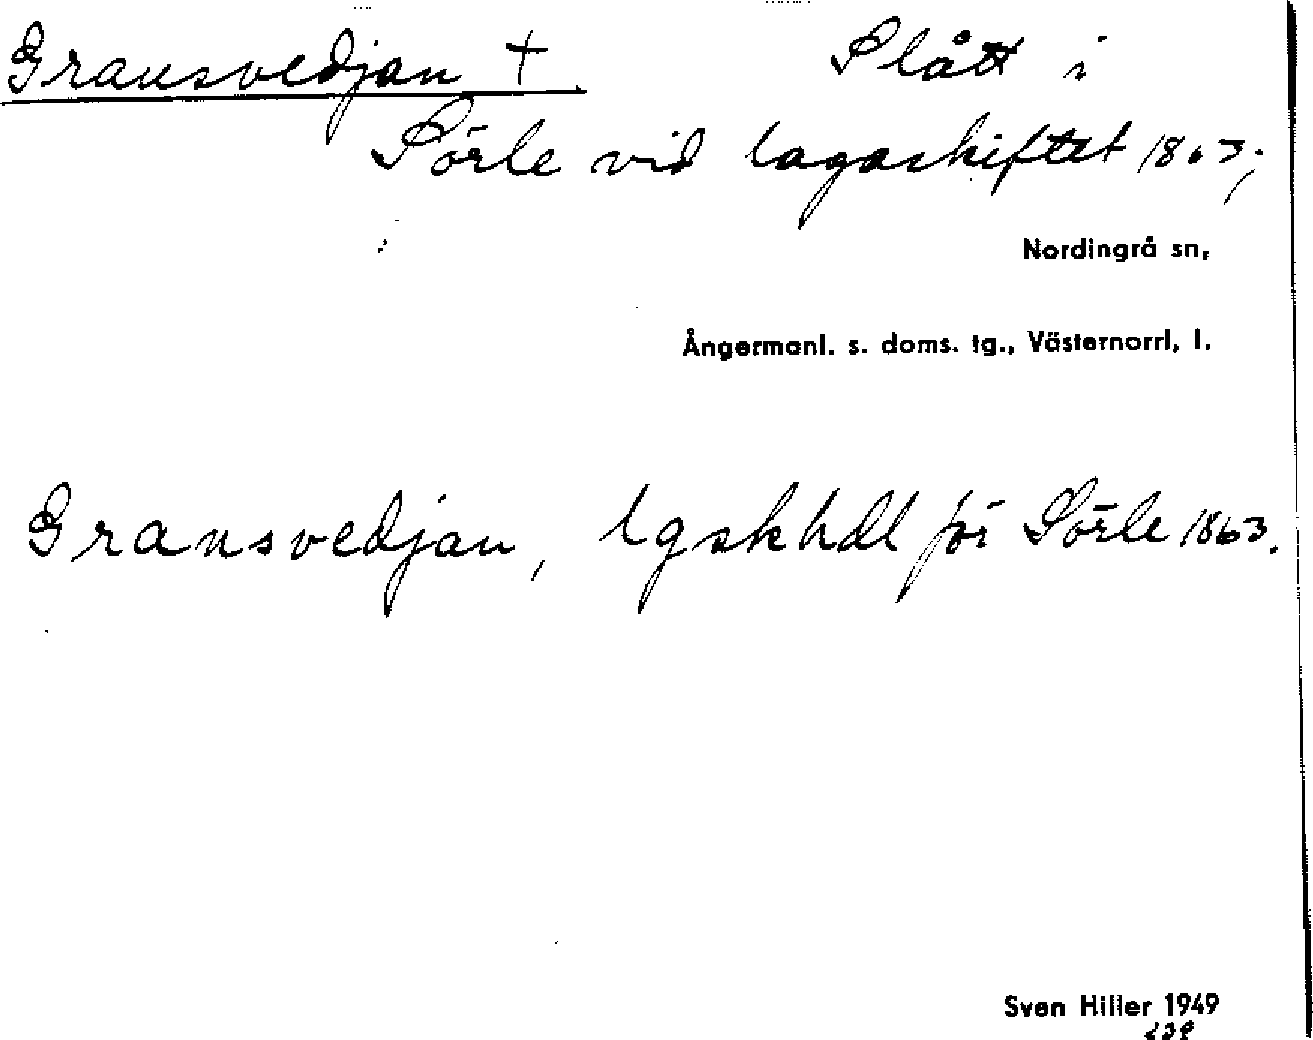 Gransvedjan † Slått i
Sörle vid lagaskiftet 1863;
Nordingrå sn,
Ångermanl. s. doms. tg., Västernorrl, l.
Gransvedjan, lgskhdl för Sörle 1863.
Sven Hiller 1949